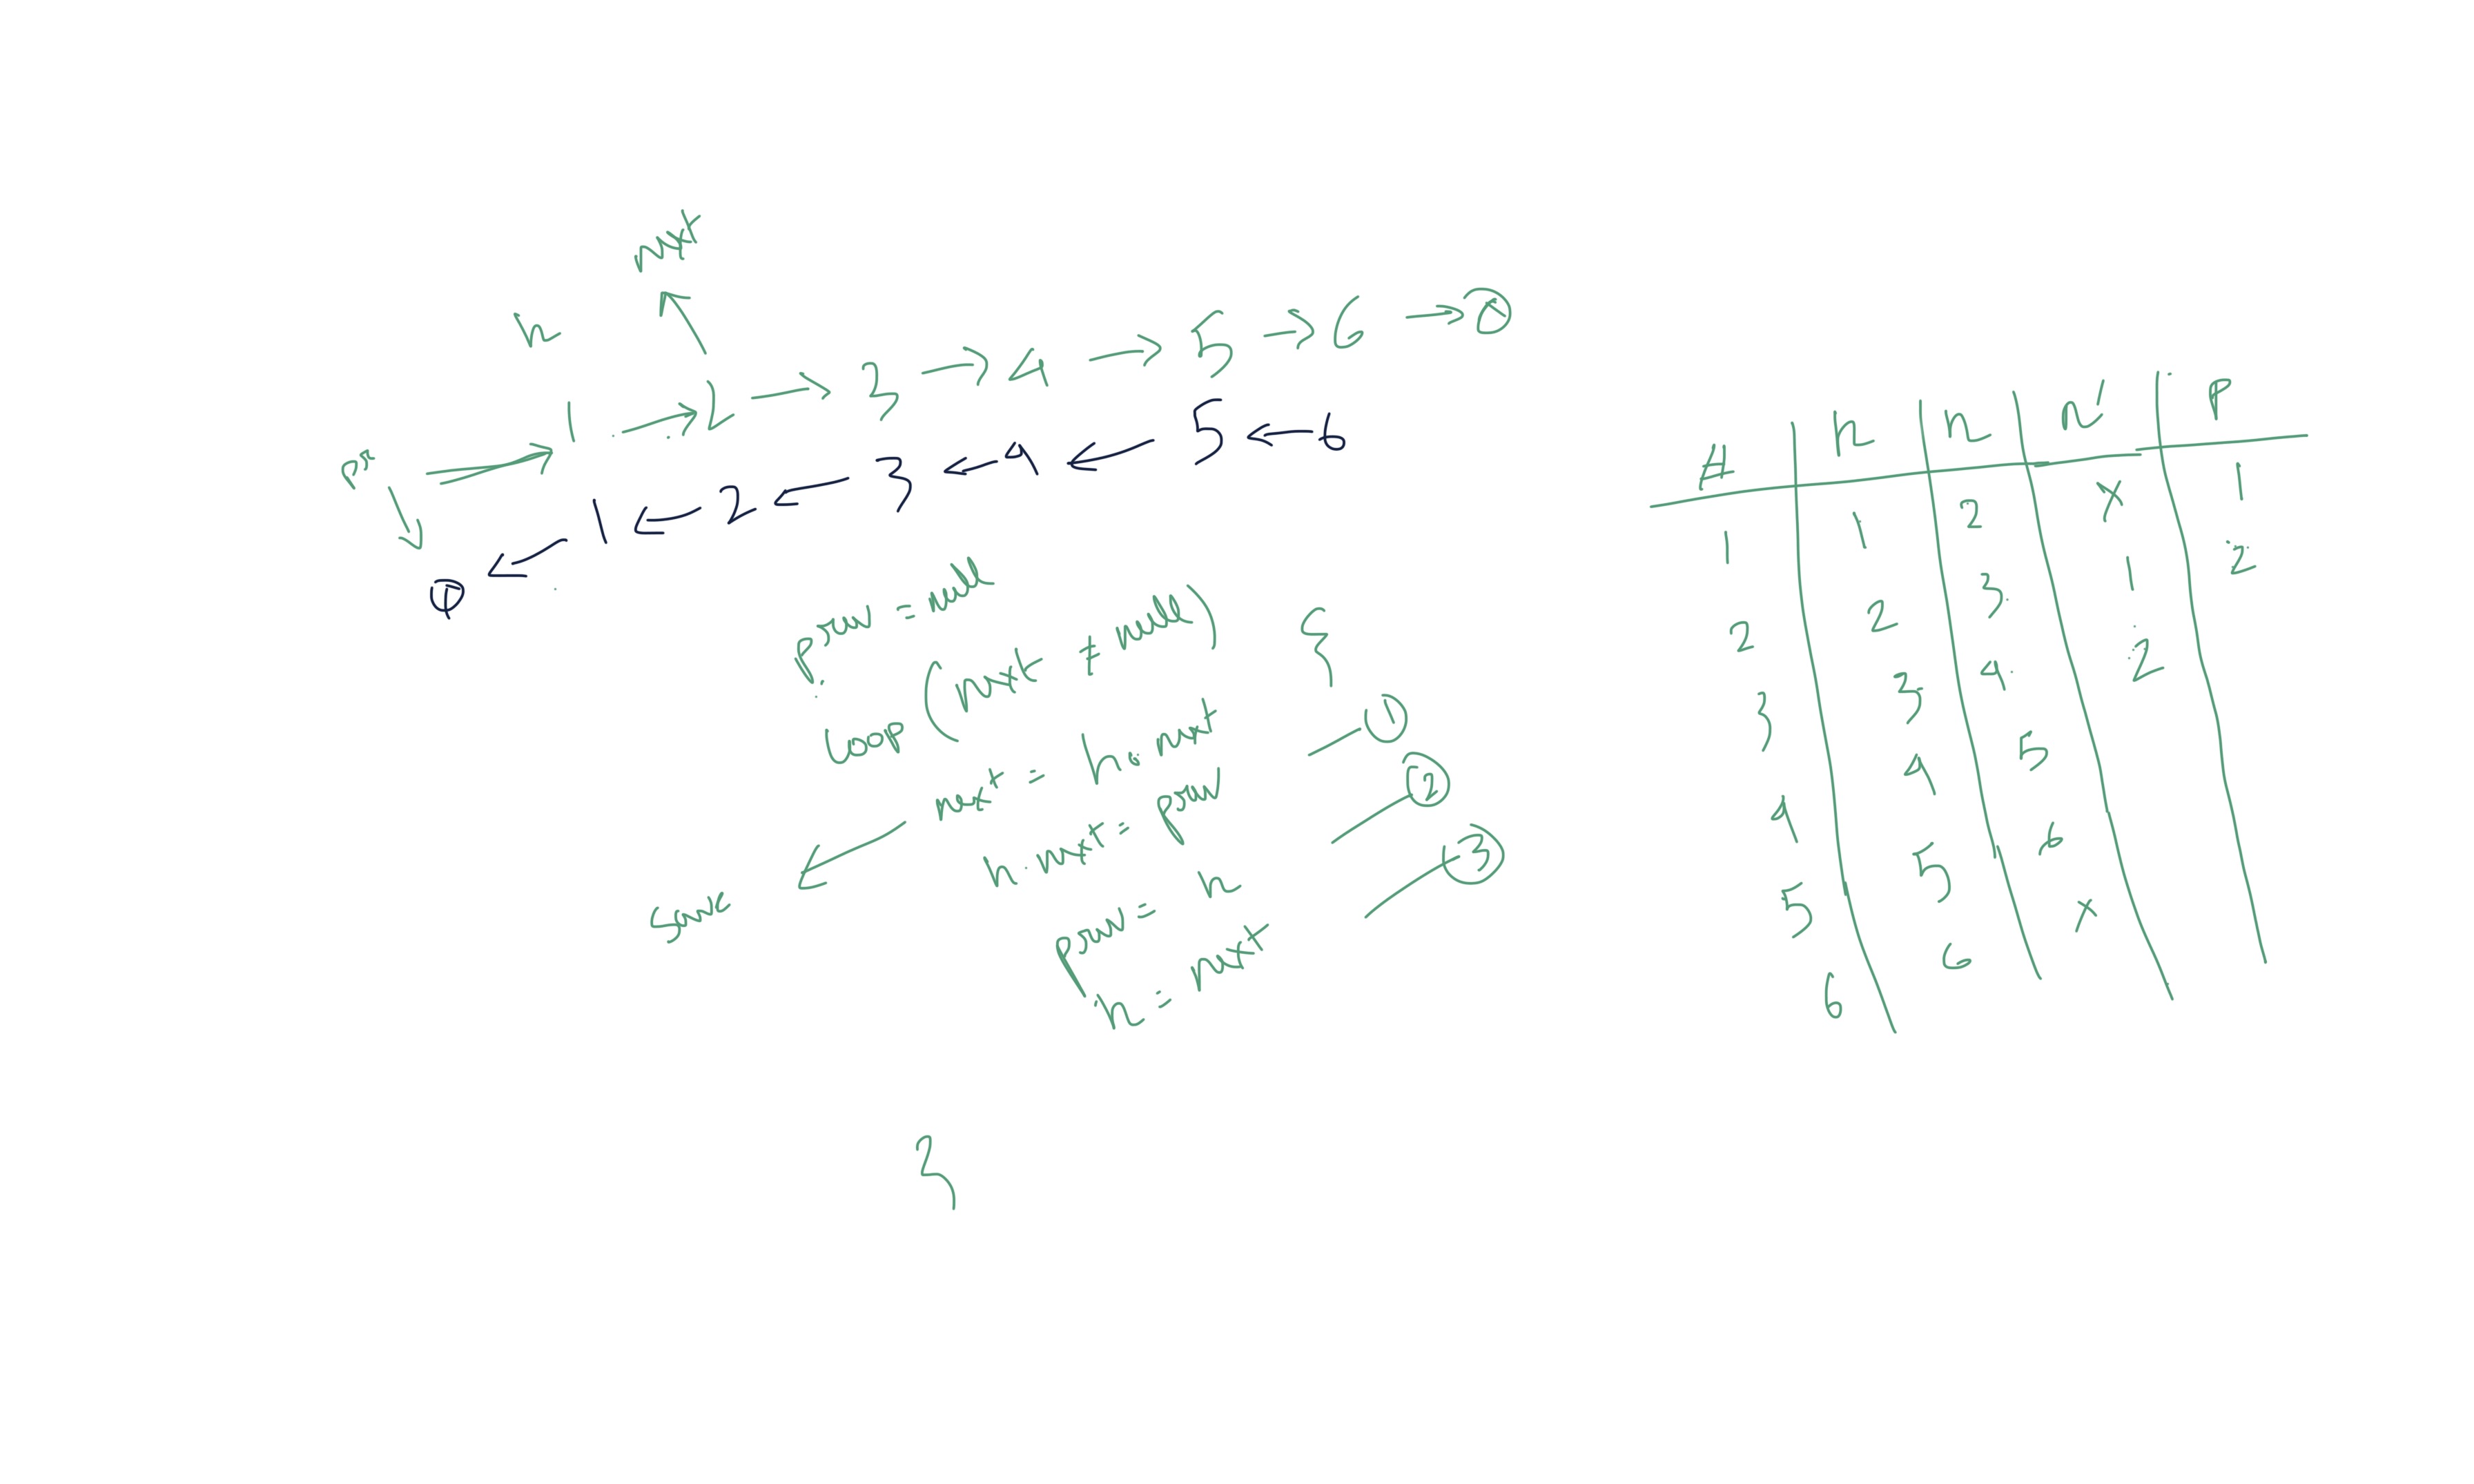 nxt
h
1 → 2 → 3 → 4 → 5 → 6 → ⊗
1 ← 2 ← 3 ← 4 ← 5 ← 6
prev = null
loop (nxt ≠ null) {
nxt = h.nxt — ①
h.nxt = prev — ②
prev = h — ③
h = nxt
save
}
# h n n' p
1 1 2 x 1
2 2 3 1 2
3 3 4 2
4 4 5
5 5 6
6 6 x